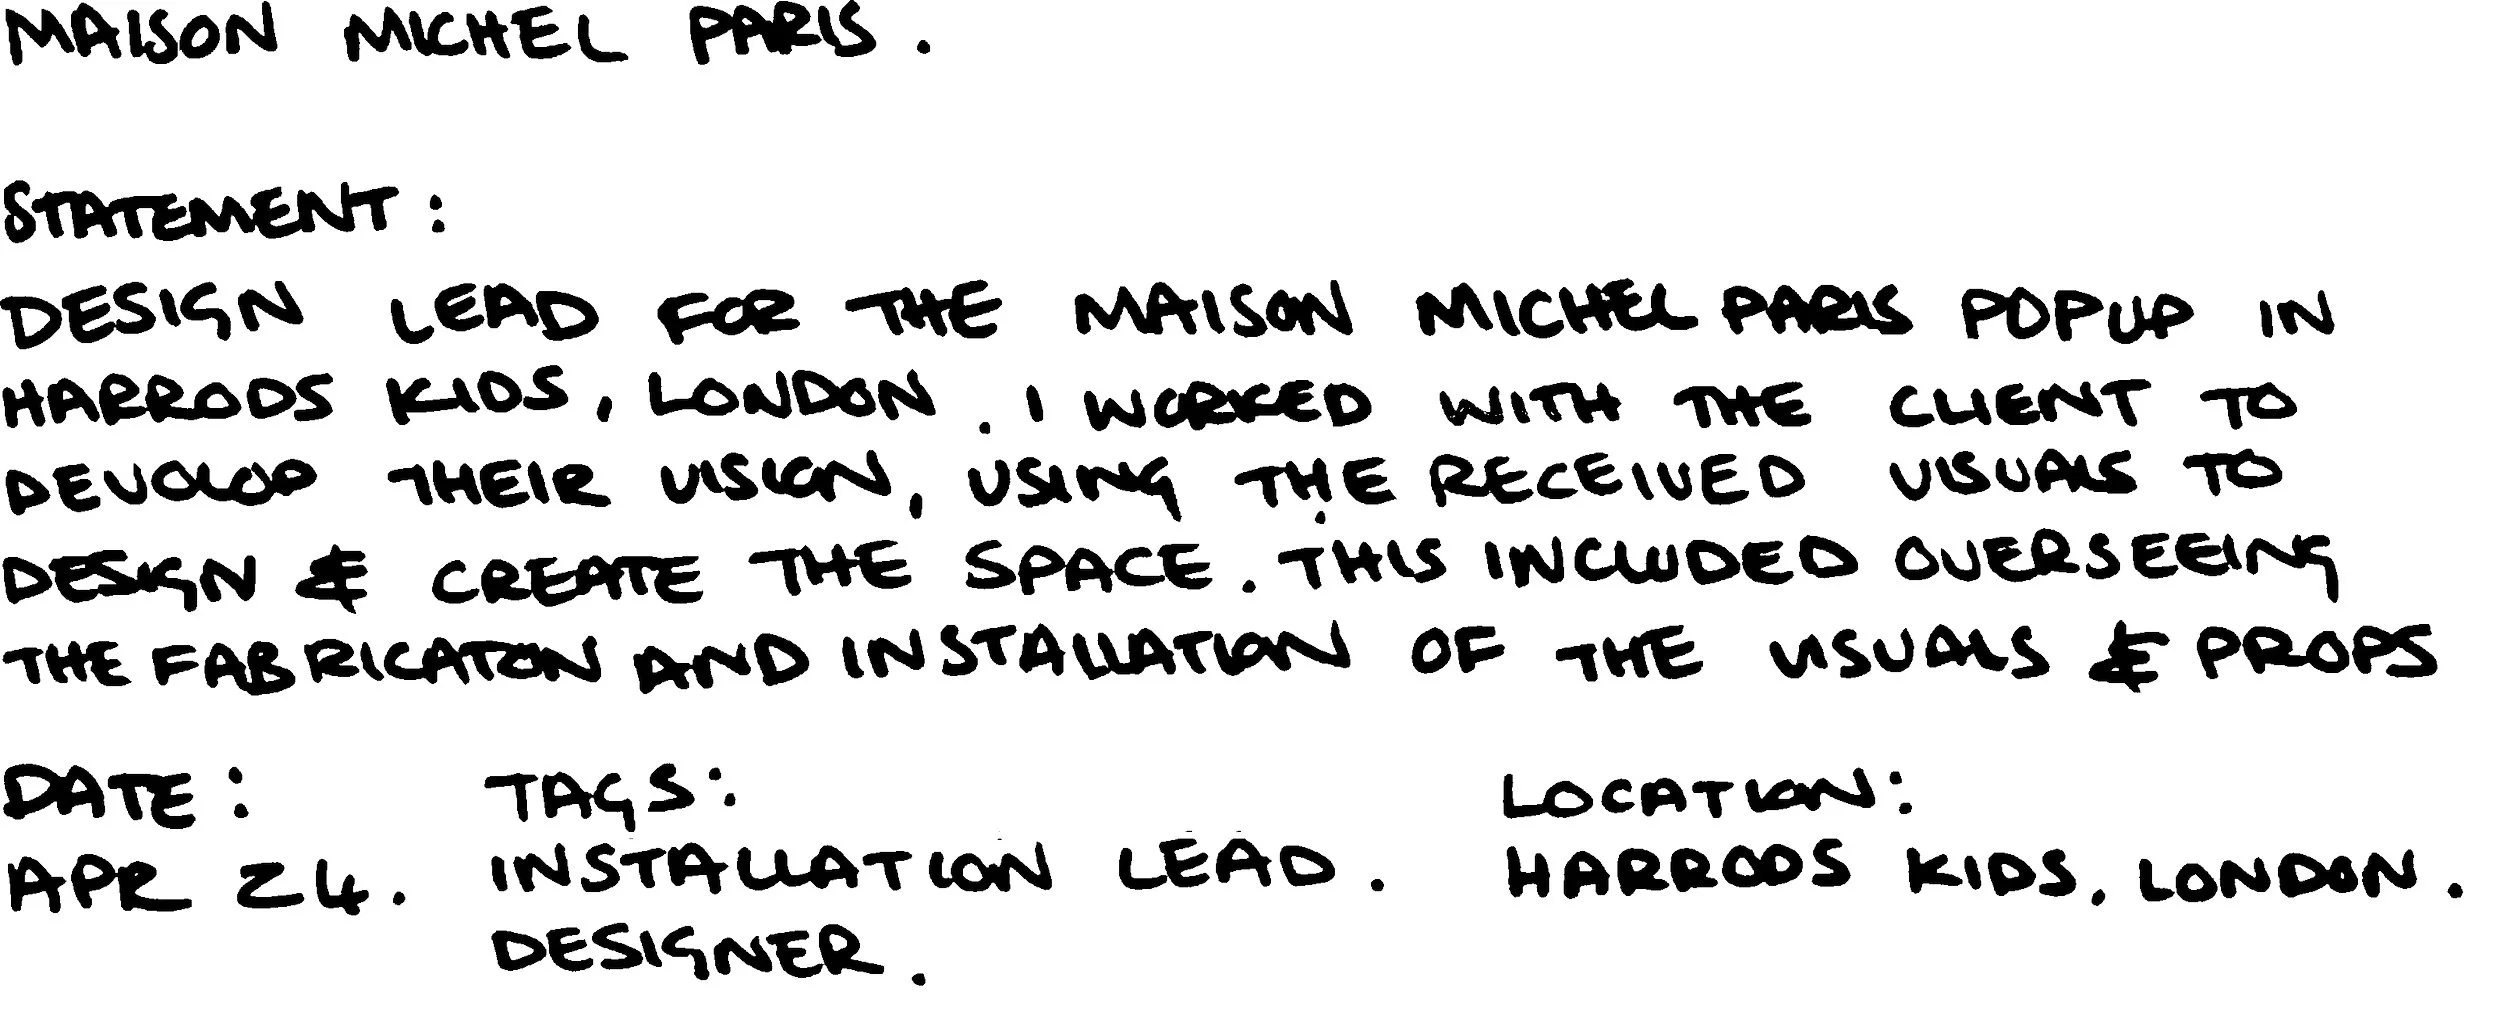 MAISON MICHEL PARIS.
STATEMENT:
DESIGN LEAD FOR THE MAISON MICHEL PARIS POPUP IN
HARRODS KIDS, LONDON. I WORKED WITH THE CLIENT TO
DEVOLOP THEIR VISION, USING THE RECEIVED VISUALS TO
DESIGN & CREATE THE SPACE. THIS INCLUDED OVERSEEING
THE FABRICATION AND INSTALLATION OF THE VISUALS & PROPS
DATE: TAGS: LOCATION:
APR 24. INSTALLATION LEAD. HARRODS KIDS, LONDON.
DESIGNER.